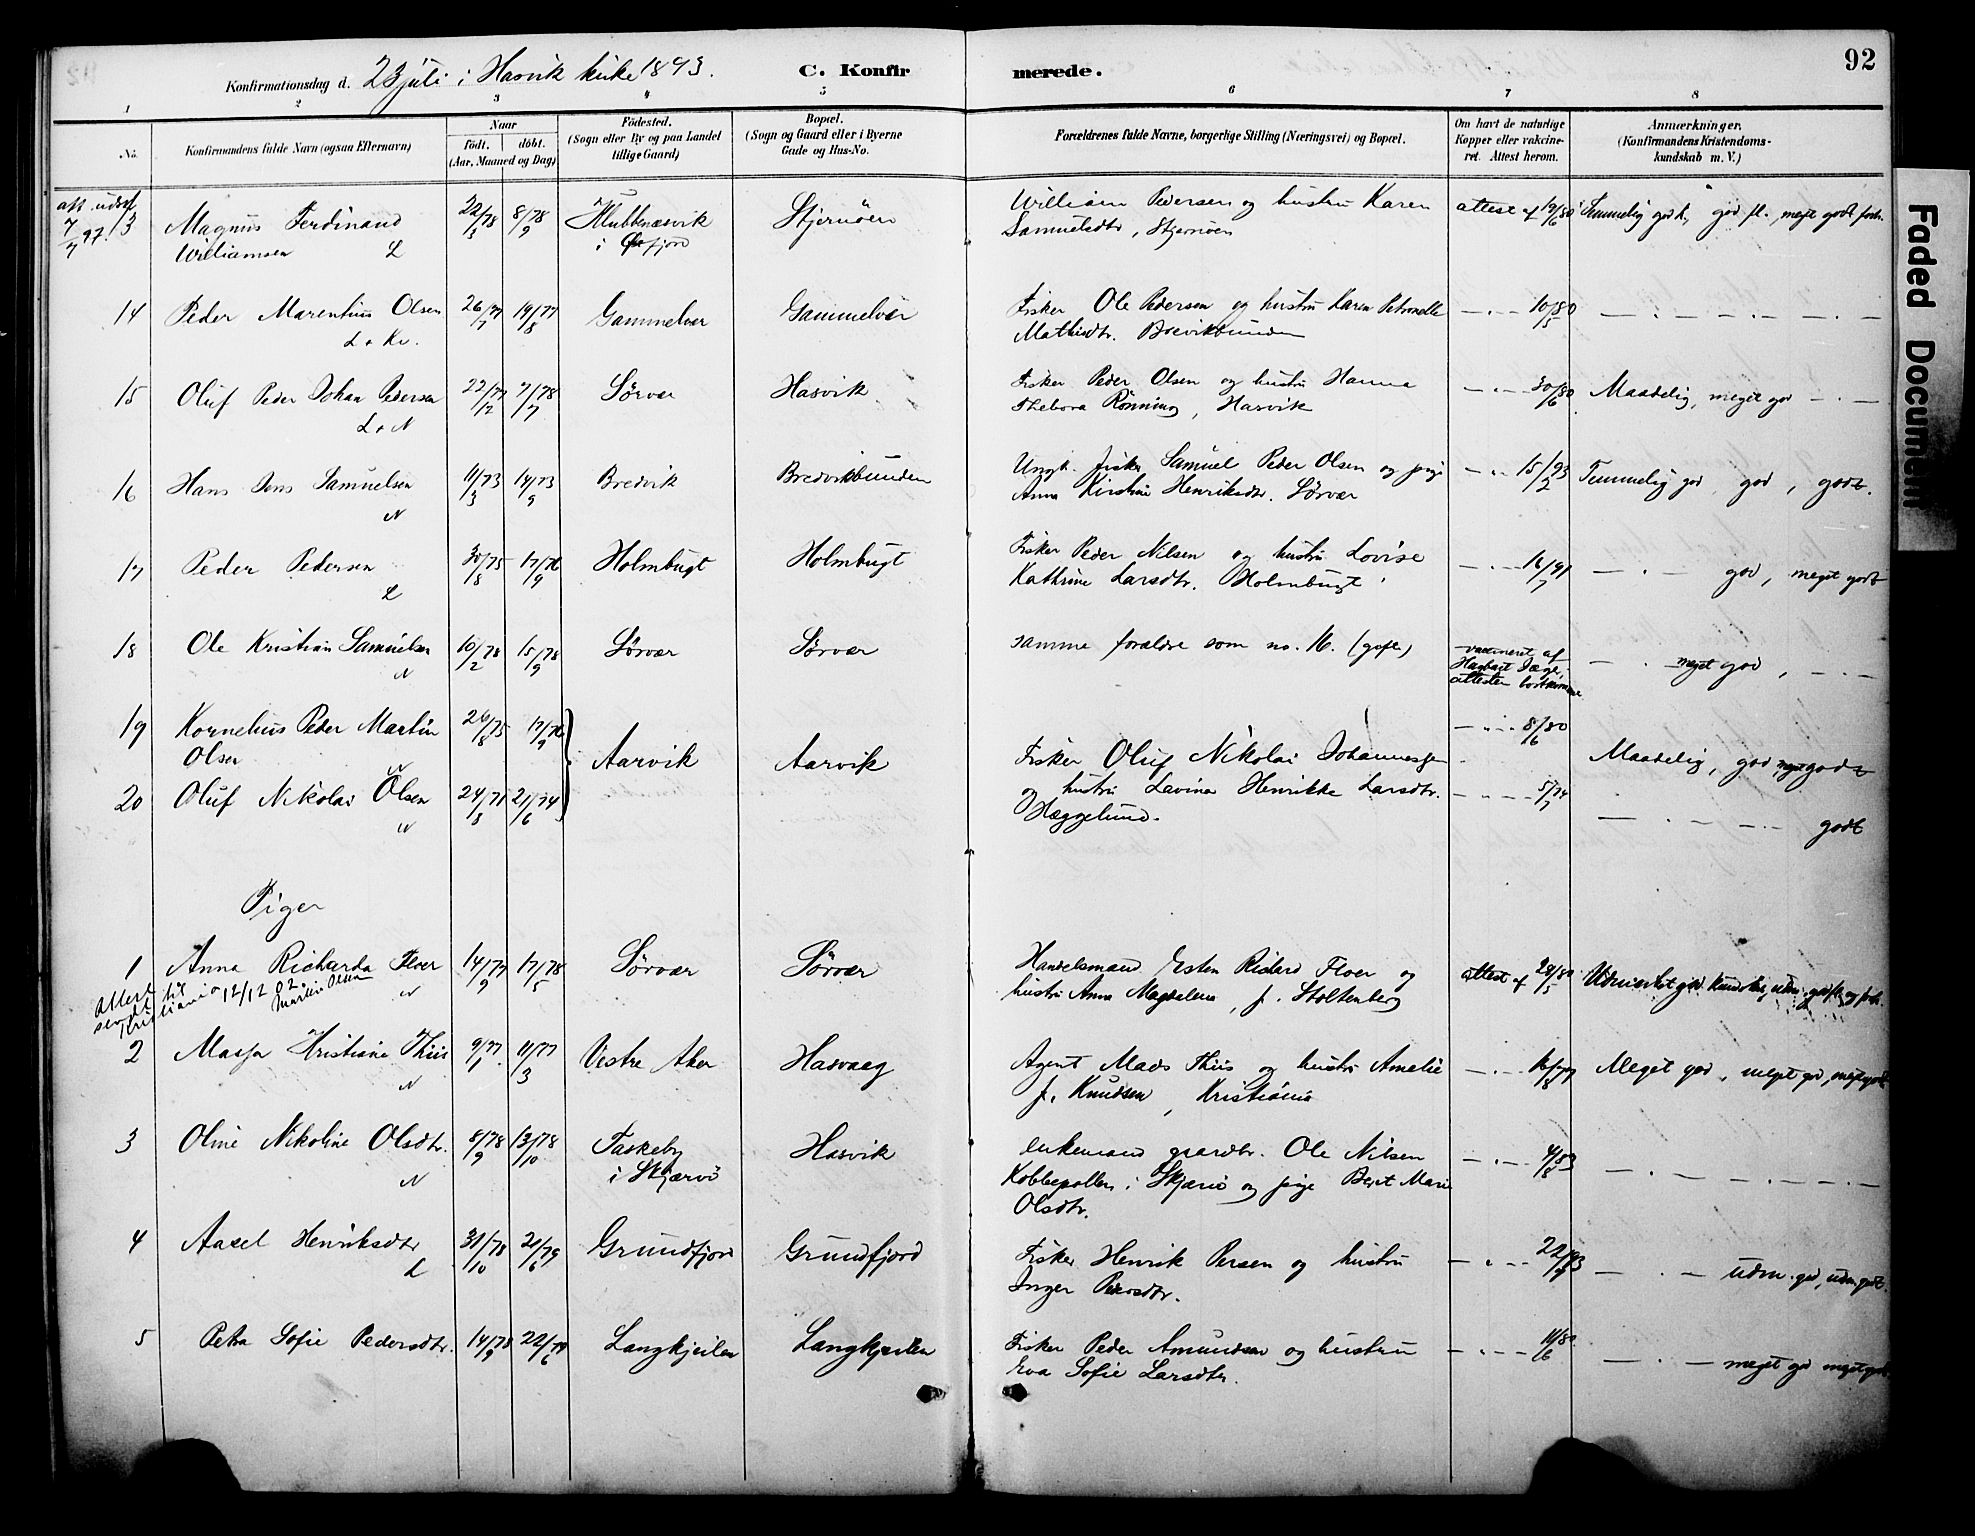 92
Konfirmationsdag d. 23 juli i Hasvik kirke 1893. C. Konfirmerede.
1 2 3 4 5 6 7 8
No. Konfirmandens fulde Navn (ogsaa Efternavn) Naar født. døbt. (Aar, Maaned og Dag) Fødested. (Sogn eller By og paa Landet tillige Gaard) Bopæl. (Sogn og Gaard eller i Byerne Gade og Hus-No. Forældrenes fulde Navne, borgerlige Stilling (Næringsvei) og Bopæl. Om havt de naturlige Kopper eller vakcineret. Attest herom. Anmærkninger. (Konfirmandens Kristendomskundskab m. V.)
att. udst. 7/7 97.
13 Magnus Ferdinand 22/3 78 8/9 78 Klubbnæsvik Stjernöen William Pedersen og hustru Karen attest af 19/6 80 Temmelig god k., god fl., meget godt forh.
Williamsen L i Øxfjord Samuelsdtr, Stjernöen
14 Peder Marenhus Olsen 26/7 77 19/8 77 Gammelvær Gammelvær Fisker Ole Pedersen og hustru Karen Petronelle — " — 10/5 80 — . — . — . —
L + Kv. Mathisdtr. Brevikbunden
15 Oluf Peder Johan Pedersen 22/12 77 7/7 78 Sørvær Hasvik Fisker Peder Olsen og hustru Hanna — " — 30/6 80 Maadelig, meget god — . —
L + N Thebora Rönning, Hasvik
16 Hans Jens Samuelsen 11/3 73 14/9 73 Bredvik Bredvikbunden Ungk. fisker Samuel Peder Olsen og pige — " — 15/2 93 Temmelig god, god, godt.
N Anna Kirstine Henriksdtr. Sørvær
17 Peder Pedersen 30/8 75 17/9 76 Holmbugt Holmbugt Fisker Peder Nilsen og hustru Lovise — " — 16/7 91 — . — god, meget godt
L Kathrine Larsdtr. Holmbugt
18 Ole Kristian Samuelsen 10/2 78 15/9 78 Sørvær Sørvær samme forældre som no. 16. (gifte) vaccineret af — . meget god, — . —
N attesten bortkommen
19 Kornelius Peder Martin 26/8 75 17/9 76 Aarvik Aarvik Fisker Oluf Nikolai Johannessen — " — 8/6 80 Maadelig, god, meget godt
Olsen N
20 Oluf Nikolai Olsen 24/8 71 21/6 74 og hustru Lavina Henrikke Larsdtr. — " — 5/7 74 — . — . — godt
N Hæggelund.
Piger
1 Anna Richarda Floer 14/9 77 17/5 78 Sørvær Sørvær Handelsmand Esten Richard Floer og attest af 28/5 80 Udmærket god kundskab, udm. god fl. og forh.
N hustru Anna Magdalena, f. Stoltenberg
Attest sendt til Kristiania 12/12 02. Martin Olsen
2 Masja Kristiane Thiis 9/1 77 11/3 77 Vestre Aker Hasvaag Agent Mads Thiis og hustru Amelie — " — 16/8 77 Meget god, meget god, meget godt
N f. Knudsen, Kristiania
3 Oline Nikoline Olsdtr. 8/9 78 13/10 78 Taskeby Hasvik enkemand gaardbr. Ole Nilsen — " — 4/8 83 — . — . — . —
N i Skjærvö Kobbepollen i Skjærvö og pige Berit Marie
Olsdtr.
4 Aasel Henriksdtr 31/10 78 21/6 79 Grundfjord Grundfjord Fisker Henrik Persen og hustru — " — 22/7 93 — . — udm. god, udm. godt.
L Inger Pedersdtr.
5 Petra Sofie Pedersdtr. 14/9 78 22/6 79 Langkjeilen Langkjeilen Fisker Peder Amundsen og hustru — " — 14/6 80 — . — meget god meget godt
Eva Sofie Larsdtr.
Faded Document